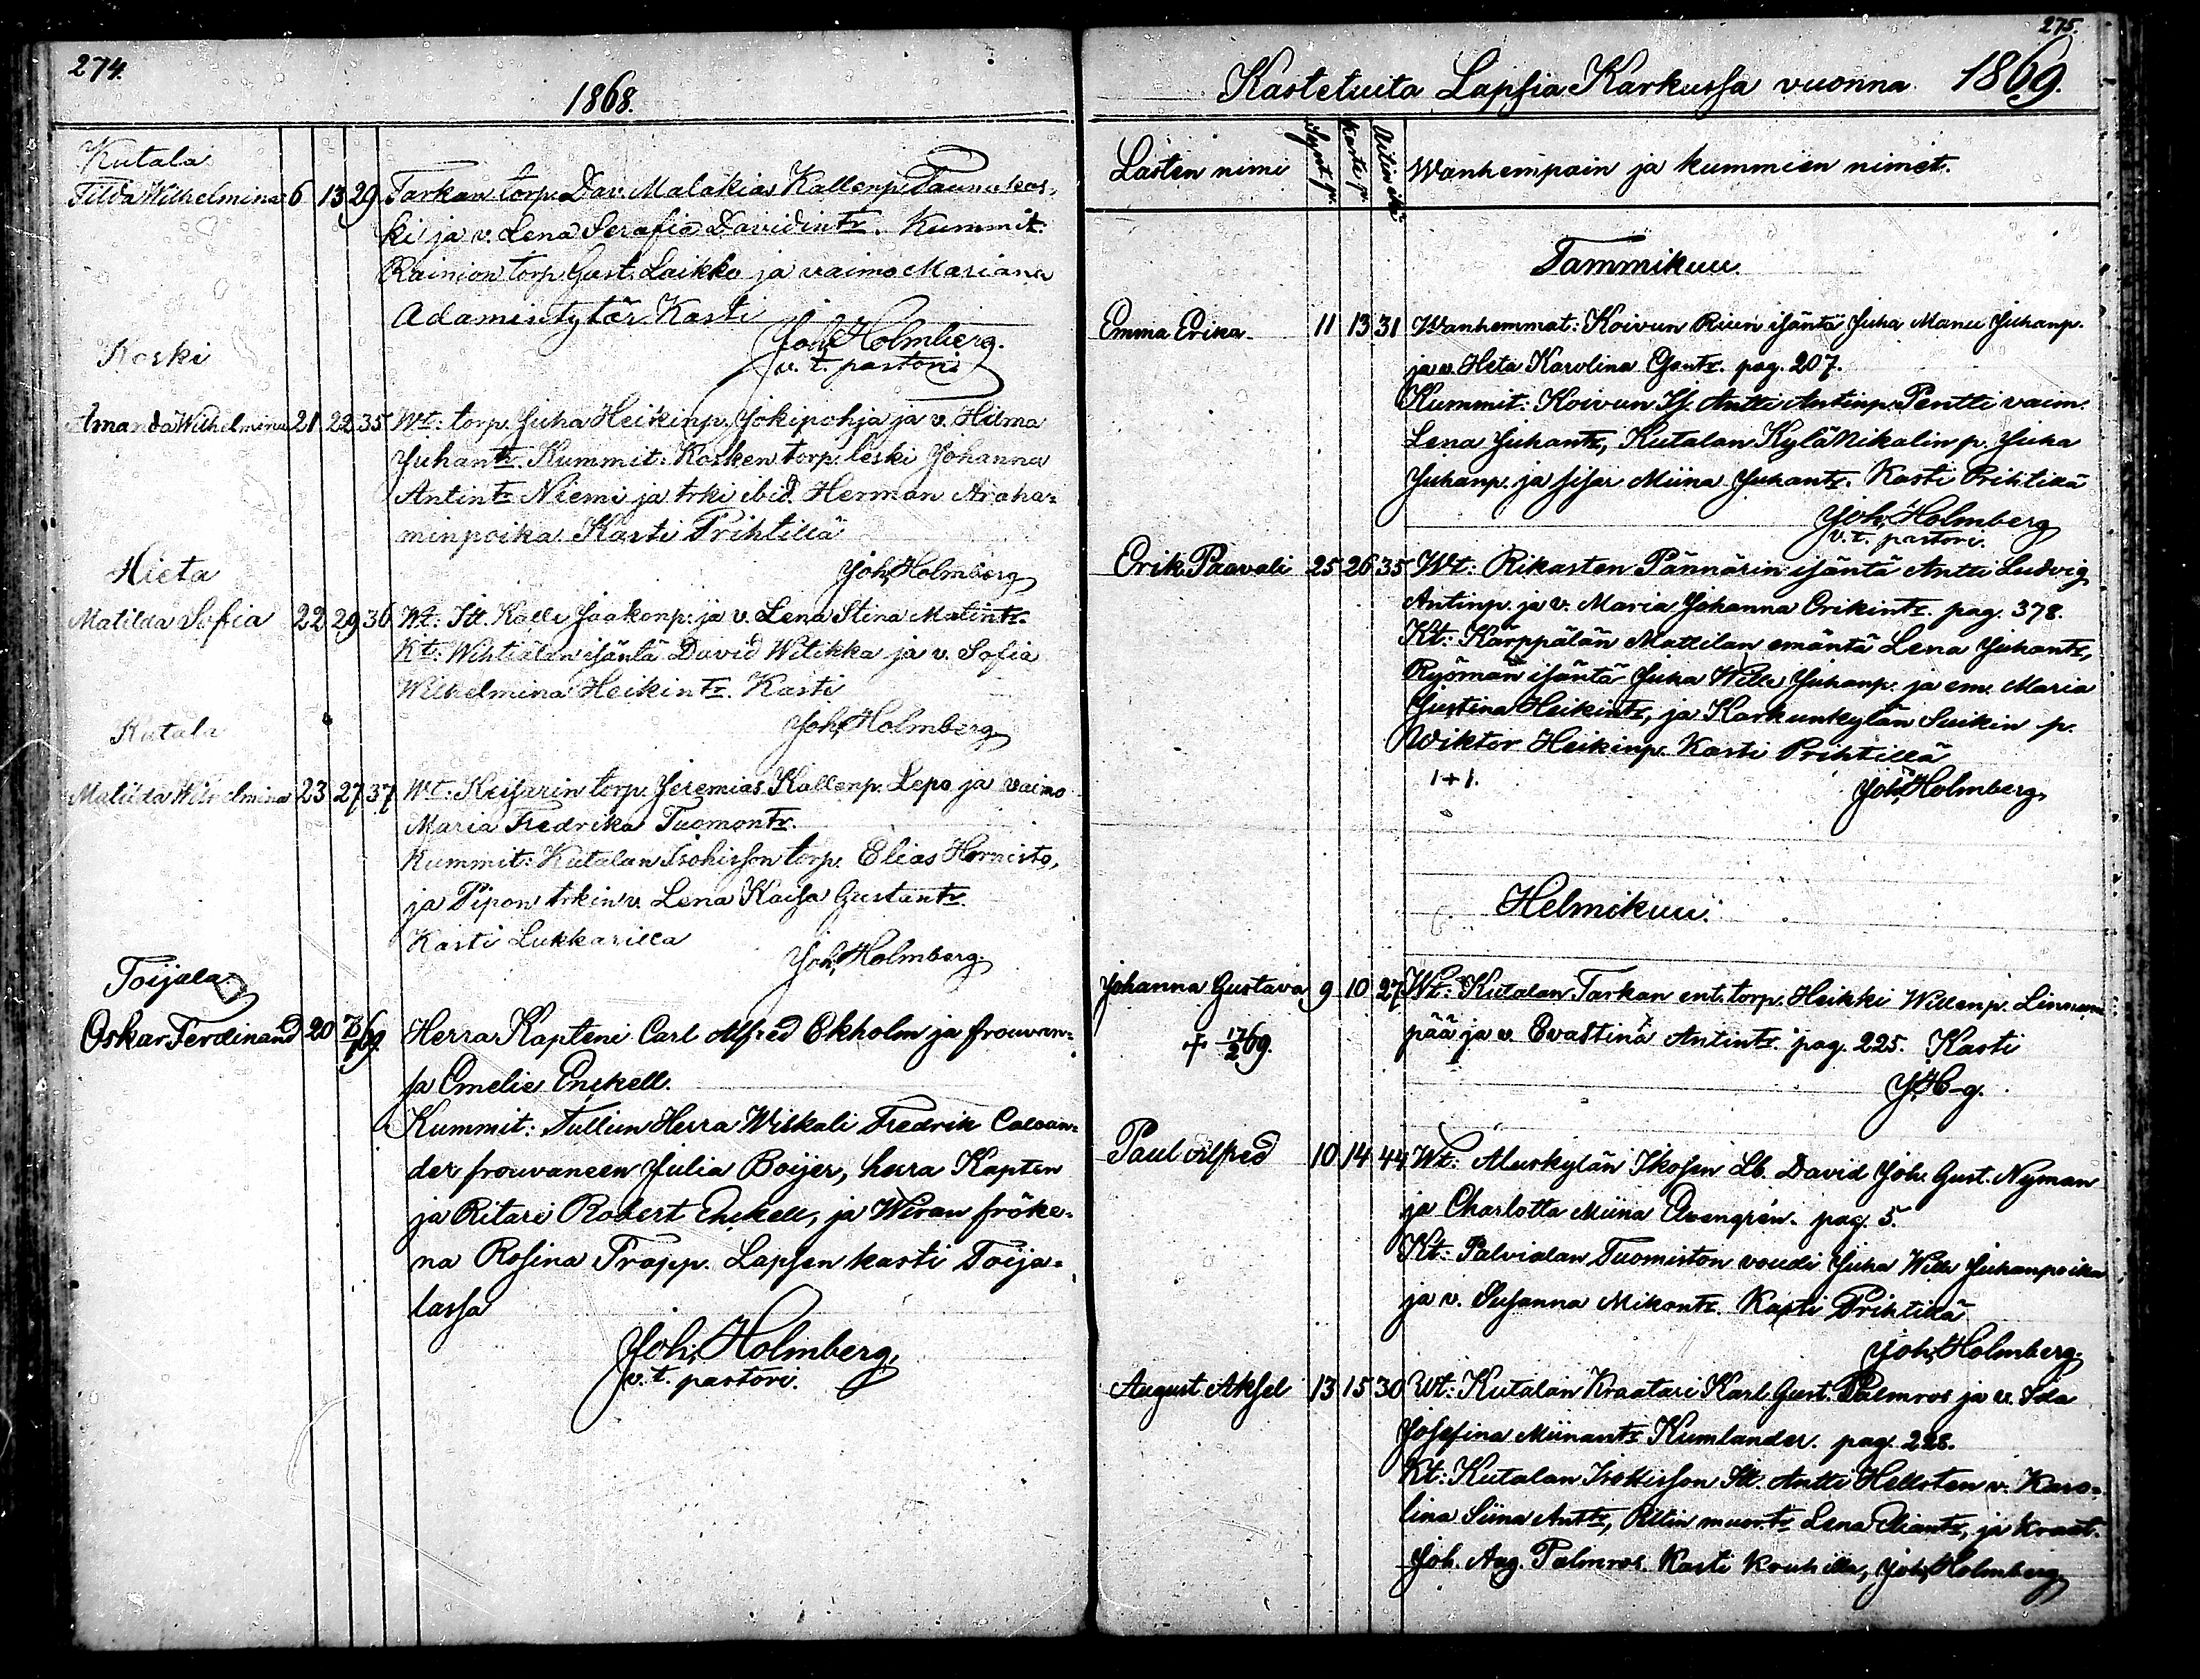 274.
1868.
Kutala
Tilda Wilhelmina 6 13 29 Tarkan torp. Dav. Malakias Kallenp. Taunukos-
ki ja v. Lena Serafia Davidintr. Kummit:
Rainion torp Gust. Laikko ja vaimo Mariana
Adamintytär Kasti
Joh. Holmberg.
v. t. pastori
Koski
Amanda Wilhelmina 21 22 35 Wt: torp. Juha Heikinp. Jokipohja ja v. Hilma
Juhantr. Kummit: Kosken torp. leski Johanna
Antintr Niemi ja trki ibid Herman Araha-
minpoika Kasti Prihtillä
Joh. Holmberg
Hieta
Matilda Sofia 22 29 36 Wt: Itt. Kalle Jaakonp. ja v. Lena Stina Matintr.
Kt: Wihtialan isäntä David Witikka ja v. Sofia
Wilhelmina Heikintr. Kasti
Joh. Holmberg
Kutala
Matilda Wilhelmina 23 27 37 Wt: Keisarin torp. Jeremias Kallenp. Lepo ja vaimo
Maria Fredrika Tuomontr.
Kummit: Kutalan Isohisson torp. Elias Hornisto,
ja Pipon trkin v. Lena Kaisa Gustantr.
Kasti Lukkarilla
Joh. Holmberg.
Toijala
Oskar Ferdinand 20 7/1 69. Herra Kapteni Carl Alfred Ekholm ja frouvan-
sa Emelie Enckell.
Kummit: Tullin Herra Wiskali Fredrik Caloan-
der frouvaneen Julia Boijer, herra Kapten
ja Ritari Robert Enckell, ja Wiran fröke-
na Rosina Trapp. Lapsen kasti Toija-
lassa
Joh. Holmberg,
v. t. pastori.
275.
Kastetuita Lapsia Karkussa vuonna 1869.
Lasten nimi Synt. p. Kaste p. Äitin ikä Wanhempain ja kummien nimet.
Tammikuu.
Emma Erika. 11 13 31 Wanhemmat: Koivun Riun isäntä Juha Manu Juhanp.
ja v. Heta Karolina Esantr. pag. 207.
Kummit: Koivun Itt. Antti Antinp. Pentti vaim.
Lena Juhantr, Kutalan Kylä Nikalin p. Juha
Juhanp. ja sisar Miina Juhantr. Kasti Prihtilä
Joh. Holmberg
v. t. pastori.
Erik Paavali 25 26 35 Wt: Rikasten Pännärin isäntä Antti Ludvig
Antinp. ja v. Maria Johanna Erikintr. pag. 378.
Kt: Kärppälän Mattilan emäntä Lena Juhantr,
Ryömän isäntä Juha Wille Juhanp. ja em. Maria
Justina Heikintr, ja Karkunkylän Suikin p.
Wiktor Heikinp. Kasti Prihtillä
1+1.
Joh. Holmberg.
Helmikuu.
Johanna Gustava 9 10 27 Wt: Kutalan Tarkan ent. torp. Heikki Willenp. Linnan
pää ja v. Evastina Antintr. pag. 225. Kasti
+ 17/2 69.
J. H-g.
Paul Alfred 10 14 44 Wt: Aluskylän Ikosen Lb. David Joh. Gust. Nyman
ja Charlotta Miina Avengrén. pag. 5.
Kt: Palvialan Tuomiston voudi Juha Wille Juhanpoika
ja v. Susanna Mikontr. Kasti Prihtilä
Joh. Holmberg.
August Aksel 13 15 30 Wt: Kutalan Kraatari Karl Gust. Palmros ja v. Ida
Josefina Miinantr Kumlander. pag. 228.
Kt: Kutalan Isohisson Itt. Antti Hellsten v. Karo-
lina Siina Anttr, Ritin muor. tr Lena Eliantr, ja Kraat.
Joh. Aug. Palmros. Kasti Kouhilla, Joh. Holmberg